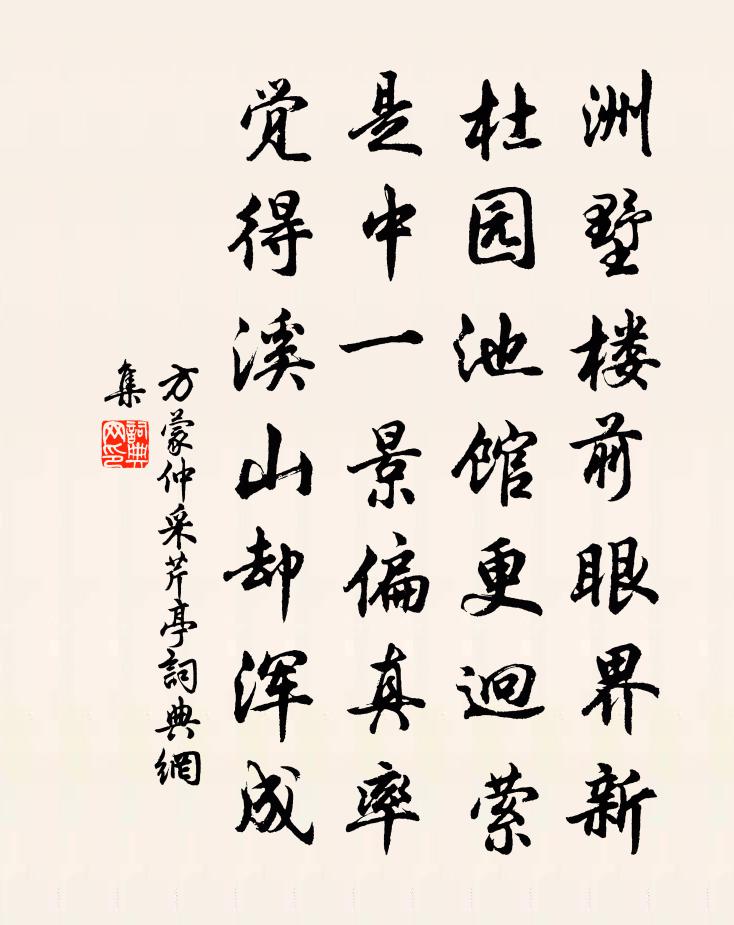 洲墅楼前眼界新
杜园池馆更迥萦
是中一景偏真率
觉得溪山却浑成
方蒙仲采芹亭詞典網
集
詞典
网印